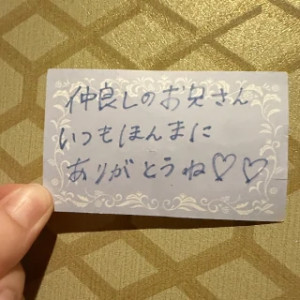 仲良しのお兄さん
いつもほんまに
ありがとうね♡♡